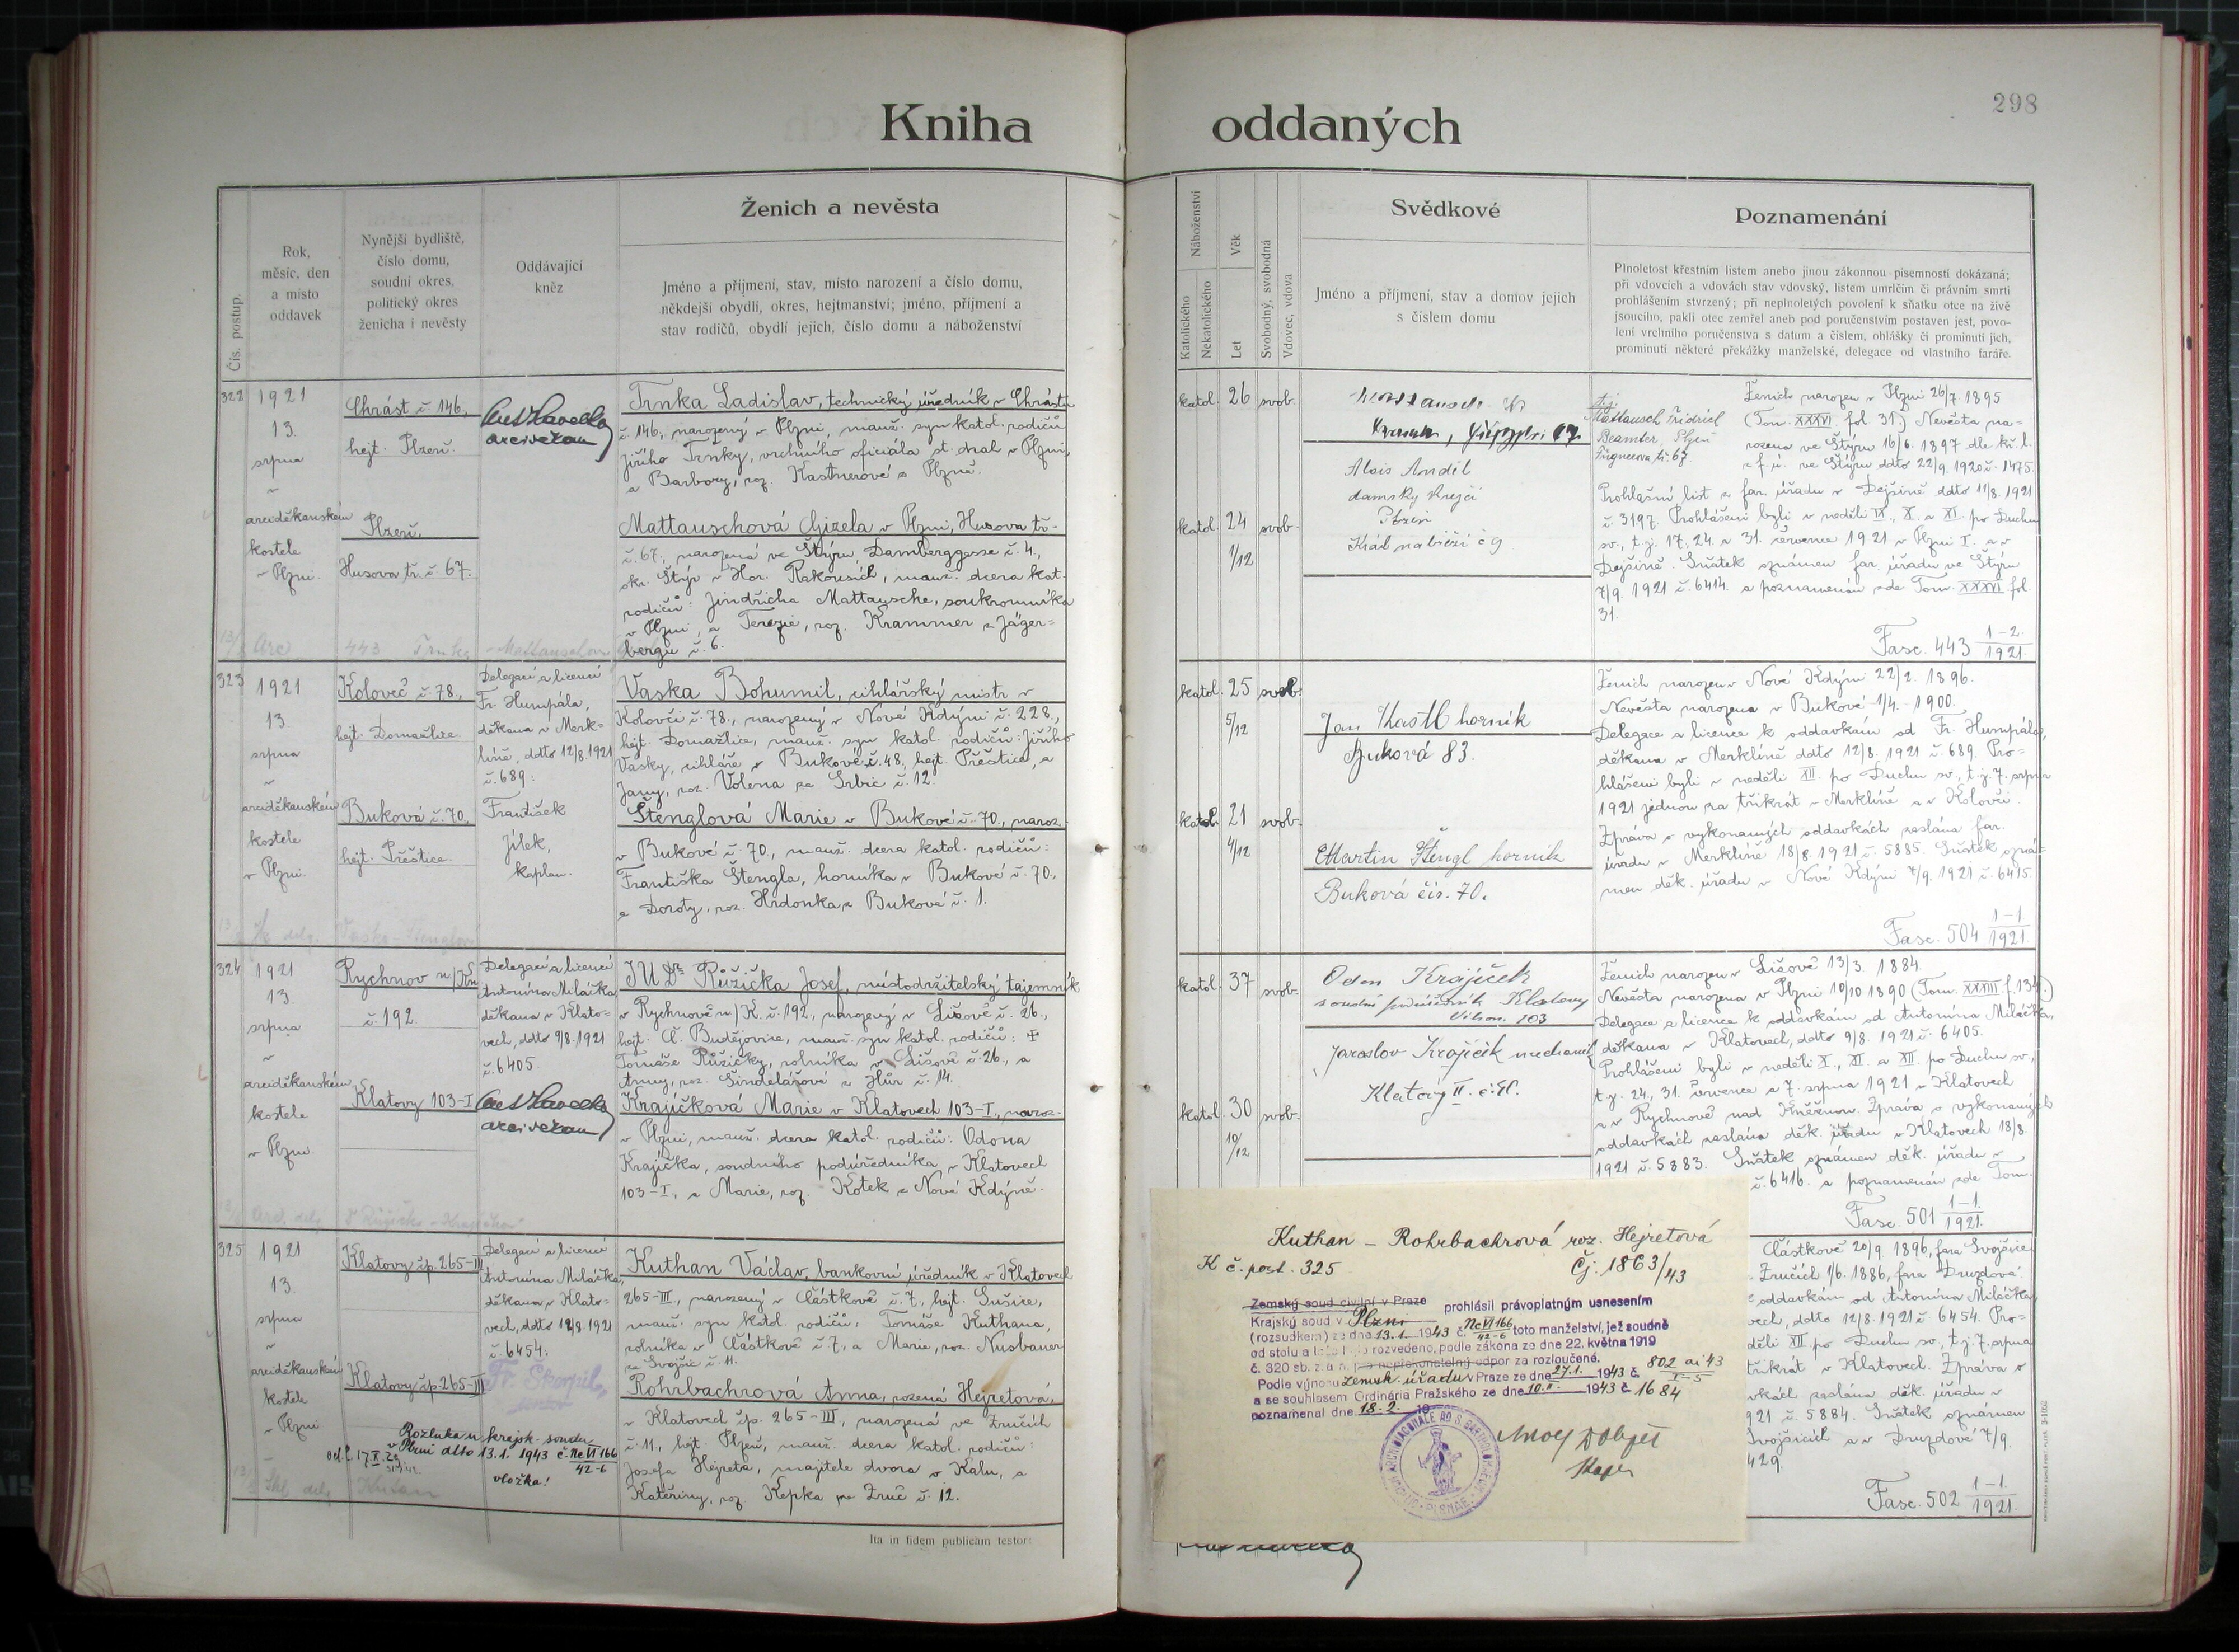 298
Kniha oddaných
Čís. postup.
Rok,
měsíc, den
a místo
oddavek
Nynější bydliště,
číslo domu,
soudní okres,
politický okres
ženicha i nevěsty
Oddávající
kněz
Ženich a nevěsta
Jméno a příjmení, stav, místo narození a číslo domu,
někdejší obydlí, okres, hejtmanství; jméno, příjmení a
stav rodičů, obydlí jejich, číslo domu a náboženství
Náboženství
Katolického
Nekatolického
Věk
Let
Svobodný, svobodná
Vdovec, vdova
Svědkové
Jméno a příjmení, stav a domov jejich
s číslem domu
Poznamenání
Plnoletost křestním listem anebo jinou zákonnou písemností dokázaná;
při vdovcích a vdovách stav vdovský, listem úmrlčím či právním smrti
prohlášením stvrzený; při neplnoletých povolení k sňatku otce na živě
jsoucího, pakli otec zemřel aneb pod poručenstvím postaven jest, povo-
lení vrchního poručenstva s datum a číslem, ohlášky či prominutí jich,
prominutí některé překážky manželské, delegace od vlastního faráře.
322
1921
13.
srpna
v
arciděkanském
kostele
v Plzni.
Chrást č. 146,
hejt. Plzeň.
Plzeň,
Husova tř. č. 67.
arciděkan
Trnka Ladislav, technický úředník v Chrástu
č. 146, narozený v Plzni, manž. syn katol. rodičů
Jiřího Trnky, vrchního oficiála st. drah v Plzni,
a Barbory, roz. Kastnerové z Plzně.
Mattauschová Gizela v Plzni, Husova tř.
č. 67., narozená ve Štýru Damberggasse č. 4.,
okr. Štýr v Hor. Rakousích, manž. dcera kat.
rodičů: Jindřicha Mattausche, soukromníka
v Plzni, a Terezie, roz. Krammer z Jäger-
bergu č. 6.
katol. 26 svob.
katol. 24 svob.
1/12
Alois Andil
damský krejčí
Plzeň
nábřeží č 9
t.j.
Mattausch Fridrich
Beamter, Plzeň
tř. 67.
Ženich narozen v Plzni 26/7. 1895
(Tom. XXXVI. fol. 31.) Nevěsta na-
rozena ve Štýru 16/6. 1897 dle kř. l.
z f. ú. ve Štýru ddto 22/9. 1920 č. 1475.
Prohlašní list z far. úřadu v Dejšině ddto 11/8. 1921
č. 3197. Prohlášeni byli v neděli IX., X. a XI. po Duchu
sv., t. j. 17., 24. a 31. července 1921 v Plzni I. a v
Dejšině. Sňatek oznámen far. úřadu ve Štýru
7/9. 1921 č. 6414. a poznamenán zde Tom. XXXVI. fol.
31.
Fasc. 443 1-2./1921.
323
1921
13
srpna
v
arciděkanském
kostele
v Plzni.
Koloveč č. 78.,
hejt. Domažlice.
Buková č. 70.,
hejt. Přeštice.
Delegací a licencí
Fr. Humpála,
děkana v Merk-
líně, ddto 12/8. 1921
č. 689:
František
Jílek,
kaplan.
Vaska Bohumil, cihlářský mistr v
Kolovči č. 78., narozený v Nové Kdýni č. 228.,
hejt. Domažlice, manž. syn katol. rodičů: Jiřího
Vasky, cihláře v Bukové č. 48, hejt. Přeštice, a
Jany, roz. Volena ze Srbic č. 12.
Štenglová Marie v Bukové č. 70., naroz.
v Bukové č. 70., manž. dcera katol. rodičů:
Františka Štengla, horníka v Bukové č. 70.,
a Doroty, roz. Hrdonka z Bukové č. 1.
katol. 25 svob.
5/12
katol. 21 svob.
4/12
Jan Kastl horník
Buková 83.
Martin Štengl horník
Buková čís. 70.
Ženich narozen v Nové Kdýni 22/2. 1896.
Nevěsta narozena v Bukové 1/4. 1900.
Delegace a licence k oddavkám od Fr. Humpála,
děkana v Merklíně ddto 12/8. 1921 č. 689. Pro-
hlášeni byli v neděli XII. po Duchu sv., t. j. 7. srpna
1921 jednou za třikrát v Merklíně a v Kolovči.
Zpráva o vykonaných oddavkách zaslána far.
úřadu v Merklíně 18/8. 1921 č. 5885. Sňatek ozná-
men děk. úřadu v Nové Kdýni 7/9. 1921 č. 6415.
Fasc. 504 1-1/1921.
324
1921
13
srpna
v
arciděkanském
kostele
v Plzni.
Rychnov n/Kn
č. 192.
Klatovy 103-I
Delegací a licencí
Antonína Miláčka,
děkana v Klato-
vech, ddto 9/8. 1921
č. 6405.
arciděkan
JUDr. Růžička Josef, místodržitelský tajemník
v Rychnově n/K. č. 192., narozený v Lišově č. 26.,
hejt. Č. Budějovice, manž. syn katol. rodičů: ✝
Tomáše Růžičky, rolníka v Lišově č. 26., a
Anny, roz. Šindelářové z Hůr č. 14.
Krajíčková Marie v Klatovech 103-I., naroz.
v Plzni, manž. dcera katol. rodičů: Odona
Krajíčka, soudního podúředníka v Klatovech
103-I., a Marie, roz. Kotek z Nové Kdýně.
katol. 37 svob.
katol. 30 svob.
10/12
Odon Krajíček
soudní podúředník Klatovy
103
Jaroslav Krajíček mechanik
Klatovy II.
Ženich narozen v Lišově 13/3. 1884.
Nevěsta narozena v Plzni 10/10 1890 (Tom. XXXIII f. 134.)
Delegace a licence k oddavkám od Antonína Miláčka,
děkana v Klatovech, ddto 9/8. 1921 č. 6405.
Prohlášeni byli v neděli X., XI. a XII. po Duchu sv.,
t. j. 24., 31. července a 7. srpna 1921 v Klatovech
a v Rychnově nad Kněžnou. Zpráva o vykonaných
oddavkách zaslána děk. úřadu v Klatovech 18/8.
1921 č. 5883. Sňatek oznámen děk. úřadu v
č. 6416. a poznamenán zde Tom.
Fasc. 501 1-1./1921.
325
1921
13.
srpna
v
arciděkanském
kostele
v Plzni
Klatovy čp. 265-III
Klatovy čp. 265-III
Delegací a licencí
Antonína Miláčka,
děkana v Klato-
vech, ddto 12/8. 1921
č. 6454:
Fr. Škorpil,
Rozluka u krajsk. soudu
v Plzni dtto 13.1. 1943 č. Nc VI 166/42-6
vložka!
Kuthan Václav, bankovní úředník v Klatovech
265-III., narozený v Částkově č. 7., hejt. Sušice,
manž. syn katol. rodičů: Tomáše Kuthana,
rolníka v Částkově č. 7., a Marie, roz. Nusbauer
ze Svojšic č. 11.
Rohrbachrová Anna, rozená Hejretová,
v Klatovech čp. 265-III., narozená ve Zručích
č. 11., hejt. Plzeň, manž. dcera katol. rodičů:
Josefa Hejreta, majitele dvora v Kalu, a
Kateřiny, roz. Kepka ze Zruč č. 12.
Ita in fidem publicam testor:
Kuthan – Rohrbachrová roz. Hejretová
K č. post. 325 Čj. 1863/43
Zemský soud civilní v Praze
Krajský soud v Plzni prohlásil právoplatným usnesením
(rozsudkem) ze dne 13.1. 1943 č. Nc VI 166/42-6 toto manželství, jež soudně
od stolu a lože bylo rozvedeno, podle zákona ze dne 22. května 1919
č. 320 sb. z. a n. pro nepřekonatelný odpor za rozloučené.
Podle výnosu zemsk. úřadu v Praze ze dne 27.1. 1943 č. 802 ai 43/I-5
a se souhlasem Ordinária Pražského ze dne 10.II. 1943 č. 1684
poznamenal dne 18.2. 19
Částkově 20/9. 1896, fara Svojšice
Zručích 1/6. 1886, fara Druzdová
oddavkám od Antonína Miláčka,
vech, ddto 12/8. 1921 č. 6454. Pro-
děli XII. po Duchu sv., t. j. 7. srpna
třikrát v Klatovech. Zpráva o
vkách zaslána děk. úřadu v
921 č. 5884. Sňatek oznámen
Svojšicích a v Druzdové 7/9.
429.
Fasc. 502 1-1./1921.